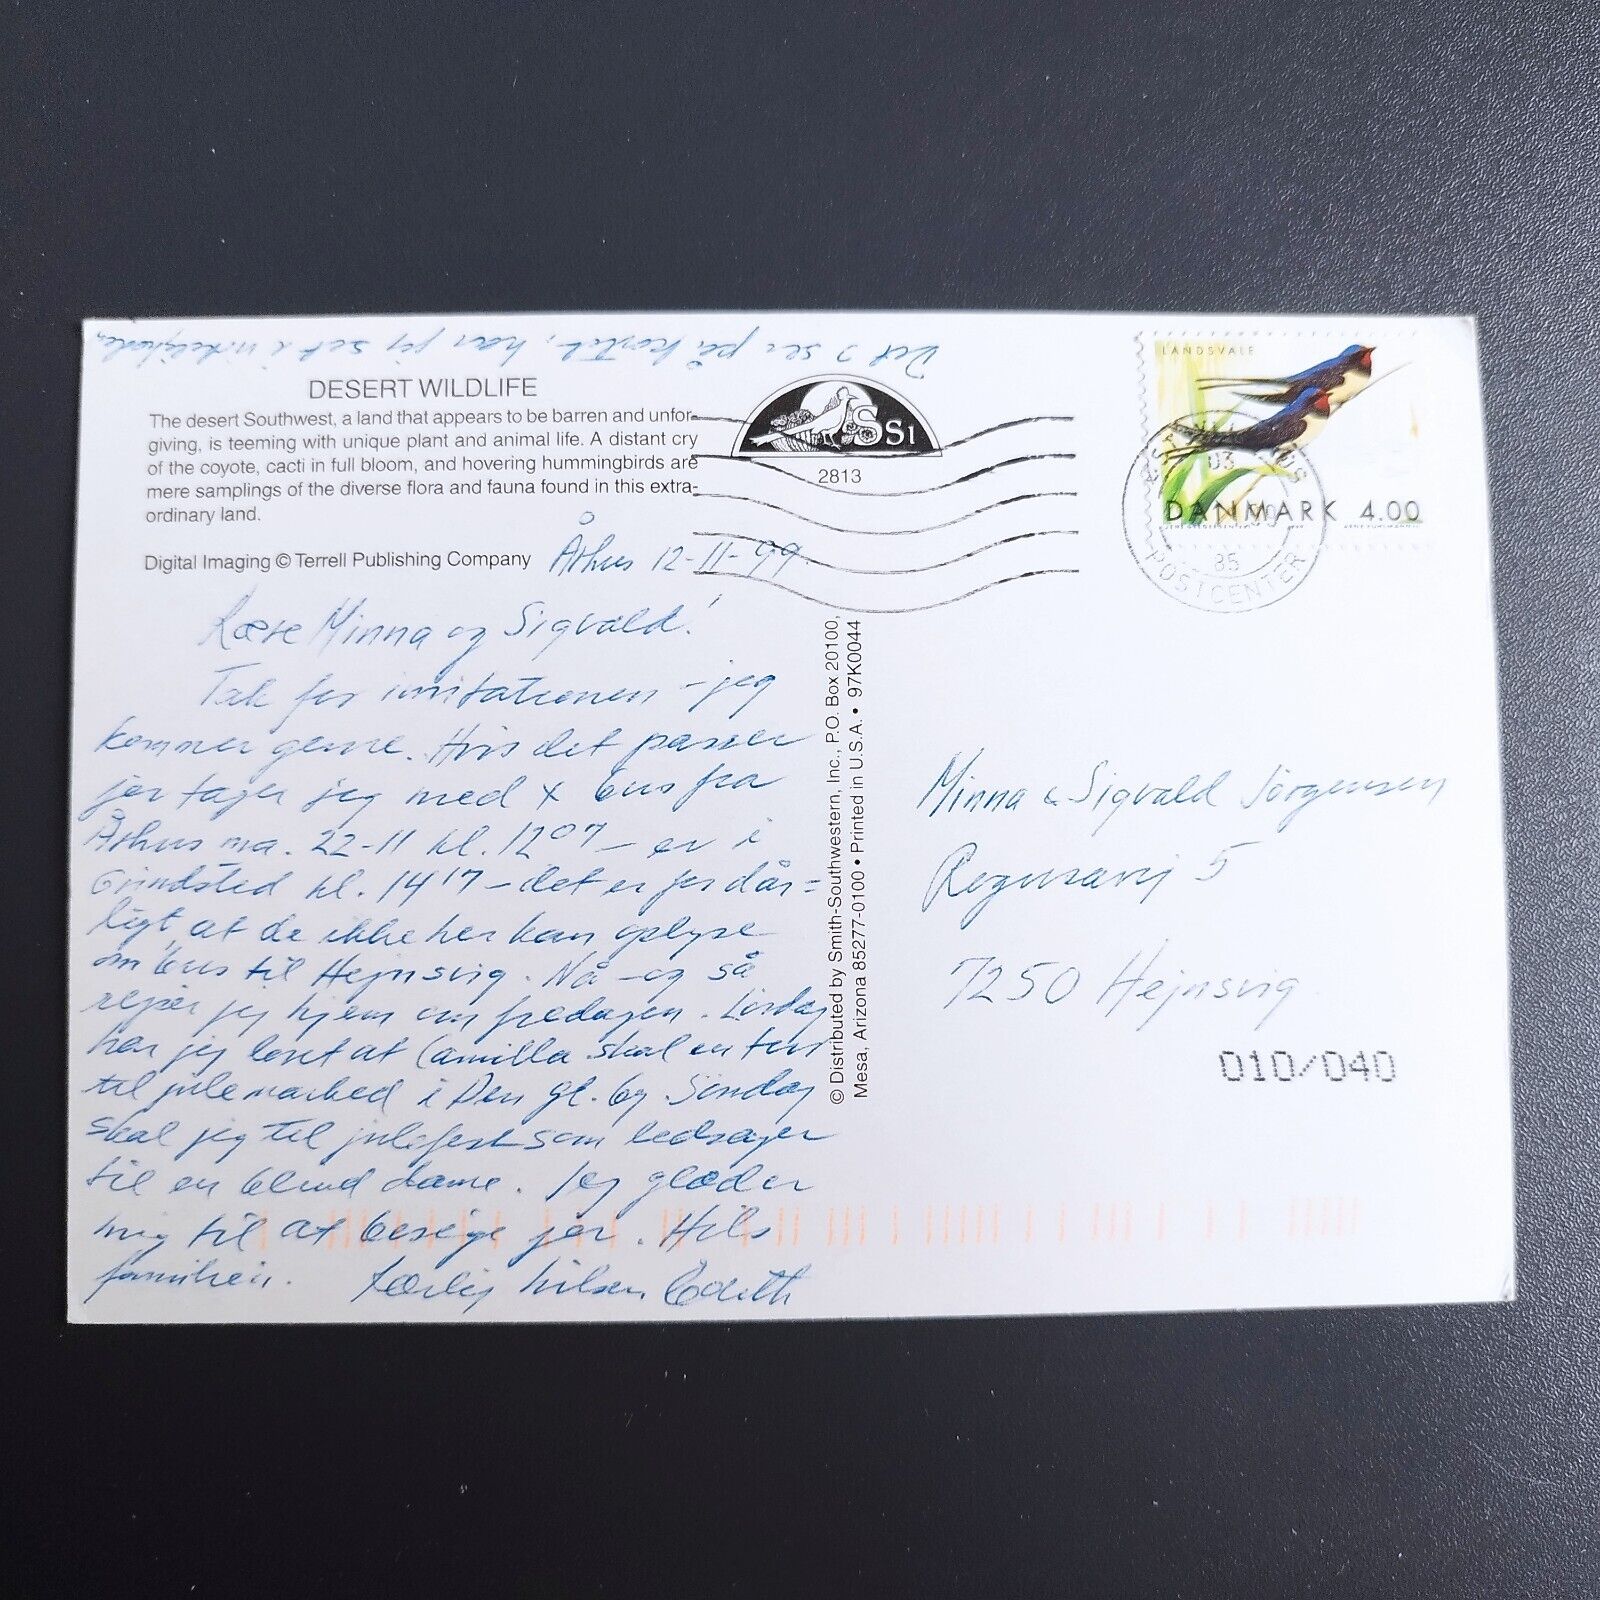 Det I ser på kortet, har jeg set i virkeligheden.
DESERT WILDLIFE
The desert Southwest, a land that appears to be barren and unfor-
giving, is teeming with unique plant and animal life. A distant cry
of the coyote, cacti in full bloom, and hovering hummingbirds are
mere samplings of the diverse flora and fauna found in this extra-
ordinary land.
Digital Imaging © Terrell Publishing Company
SSI
2813
Århus 12-11-99
Kære Minna og Sigvald!
Tak for invitationen - jeg
kommer gerne. Hvis det passer
jer tager jeg med X bus fra
Århus ma. 22-11 kl. 12 07 - er i
Grindsted kl. 14 17 - det er for dår=
ligt at de ikke her kan oplyse
om bus til Hejnsvig. Nå - og så
rejser jeg hjem om fredagen. Lørdag
har jeg lovet at Camilla skal en tur
til julemarked i Den gl. by. Søndag
skal jeg til julefest som ledsager
til en blind dame. Jeg glæder
mig til at besøge jer. Hils
familien. Kærlig hilsen Edith
© Distributed by Smith-Southwestern, Inc., P.O. Box 20100,
Mesa, Arizona 85277-0100 • Printed in U.S.A. • 97K0044
LANDSVALE
DANMARK 4.00
03
85
POSTCENTER
Minna & Sigvald Jörgensen
5
7250 Hejnsvig
010/040